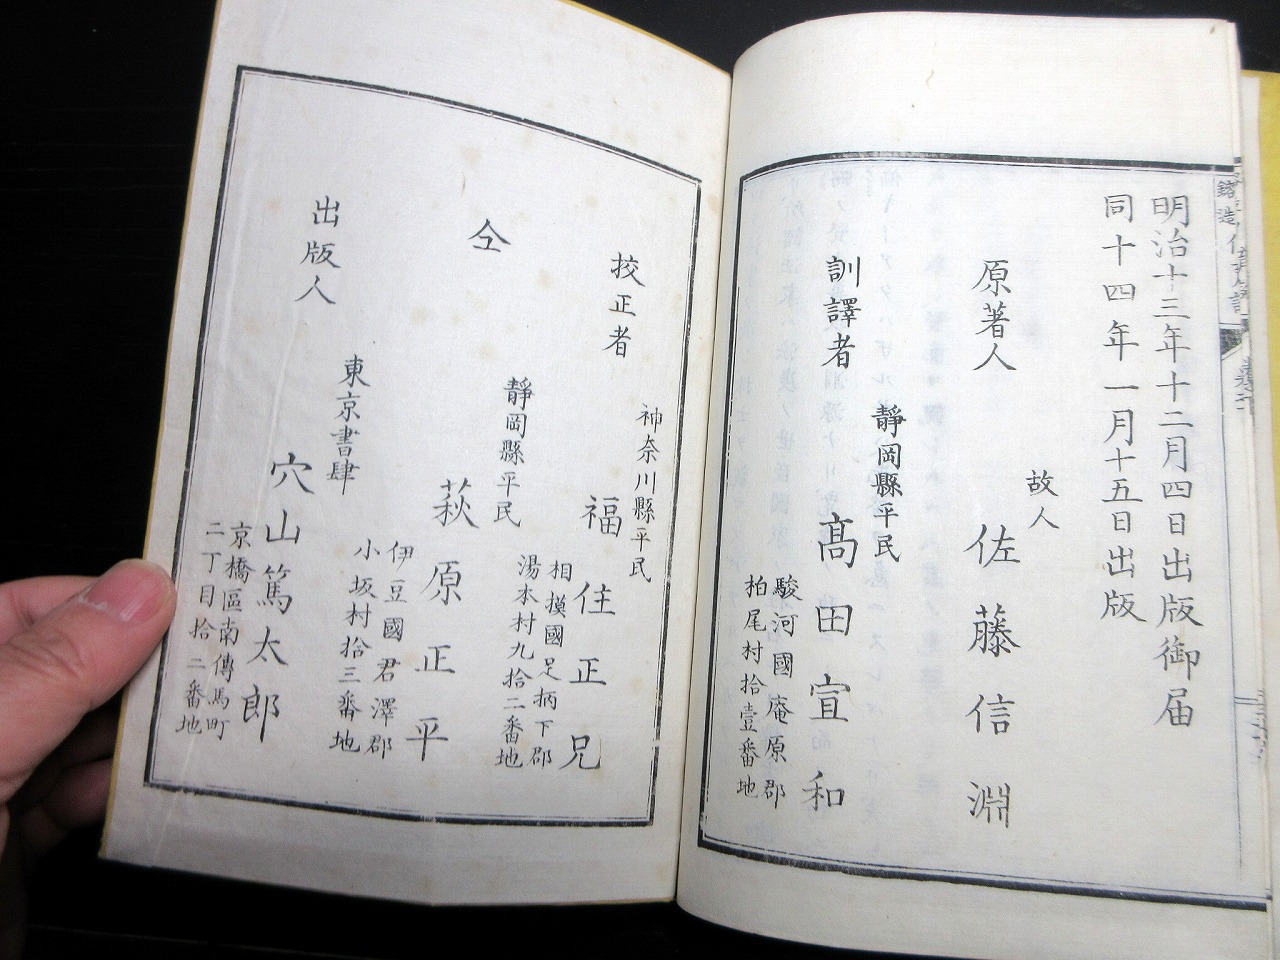 明治十三年十二月四日出版御届
同十四年一月十五日出版
原著人
故人
佐藤信淵
訓譯者
靜岡縣平民
髙田宣和
駿河國庵原郡
柏尾村拾壹番地
校正者
神奈川縣平民
福住正兄
相摸國足柄下郡
湯本村九拾二番地
仝
靜岡縣平民
萩原正平
伊豆國君澤郡
小坂村拾三番地
出版人
東京書肆
穴山篤太郎
京橋區南傳馬町
二丁目拾二番地